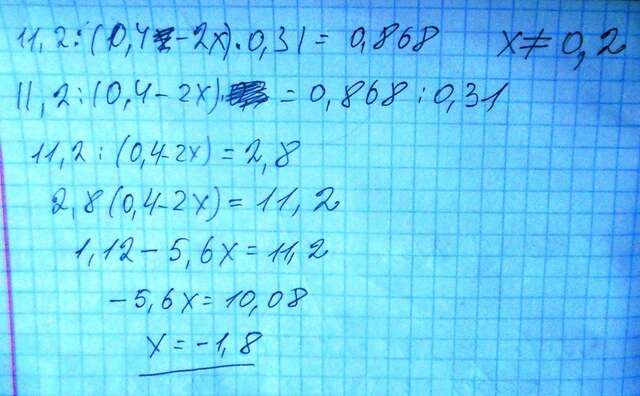 11,2:(0,4-2x)·0,31=0,868 x≠0,2
11,2:(0,4-2x)=0,868:0,31
11,2:(0,4-2x)=2,8
2,8(0,4-2x)=11,2
1,12-5,6x=11,2
-5,6x=10,08
x=-1,8